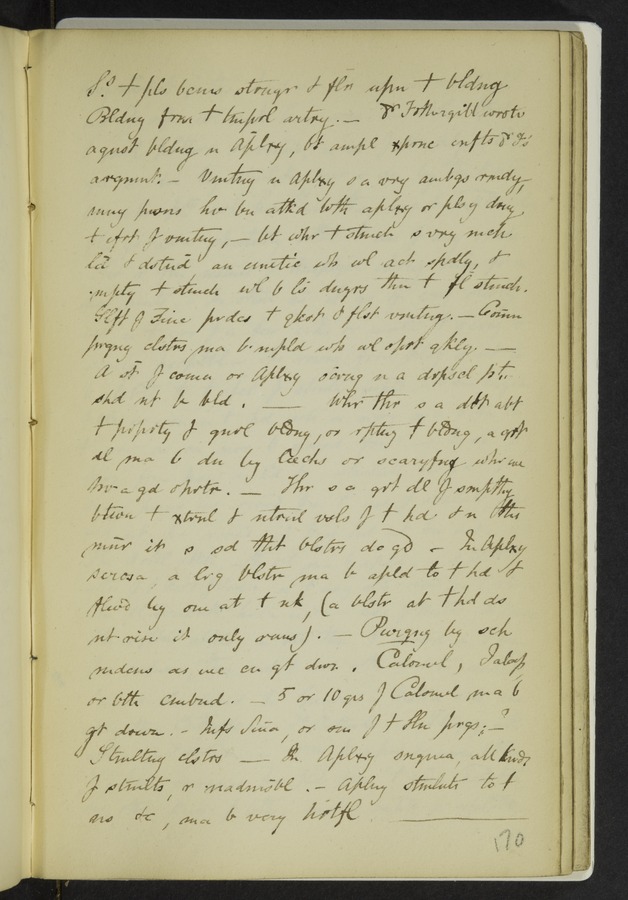 So + pls bcms strongr & flr upn + bldng
Bldng from + tmporl artry. — Dr Fothergill wrote
agnst bldng n Aplxy, bt ampl xprnc cnfts Dr Fs
argmnt. — Vmtng n Aplxy s a vry ambgs rmdy,
mny prsns hv bn attkd wth aplxy or plsy dng
+ efrt f vomtng, — bt whr + stmch s vry mch
& dstnd an emetic wh wl act spdly, &
mpty + stmch wl b ls dngrs thn + fl stmch.
Slft f Zinc prdcs + qkst & flst vmtng. — Comn
prgng clstrs ma b mpld wh wl oprt qkly. —
A st f coma or Aplxy ocrng n a drpscl pt.
shd nt b bld. — Whr thr s a dbt abt
+ proprity f gnrl bldng, or rptng + bldng, a grt
dl ma b dn by Leechs or scaryfng whr we
hv a gd oprtr. — Thr s a grt dl f smpthy
btwn + xtrnl & ntrnl vsls f + hd & n ths
mnr it s sd tht blstrs do gd — In Aplxy
serosa, a lrg blstr ma b apld to + hd &
flwd by one at + nk, (a blstr at + hd ds
nt rise it only oozes). — Purgng by sch
mdcns as we cn gt dwn. Calomel, Jalap
or bth cmbnd. — 5 or 10 grs f Calomel ma b
gt down. — Infs Sena, or sm f + prgs. —
Stmltng clstrs — In Aplxy sngnea, all kinds
f stmlts, r nadmsbl. — Aplyng stmlnts to +
ns &c, ma b very hrtfl
170